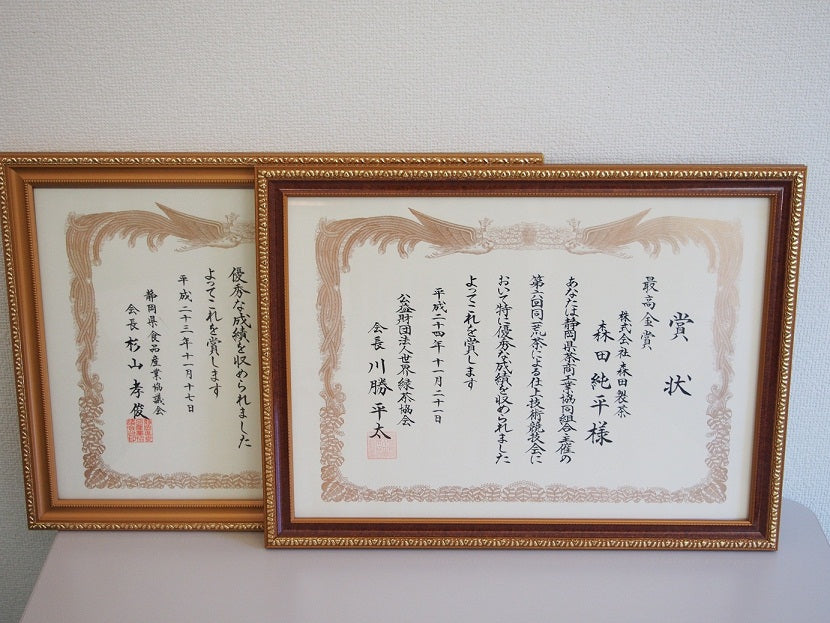 賞状
最高金賞
株式会社 森田製茶
森田純平様
あなたは静岡県茶商工業協同組合主催の
第六回同一荒茶による仕上技術競技会に
おいて特に優秀な成績を収められました
よってこれを賞します
平成二十四年十一月二十一日
公益財団法人世界緑茶協会
会長 川勝平太
優秀な成績を収められました
よってこれを賞します
平成二十三年十一月十七日
静岡県食品産業協議会
会長 杉山孝俊